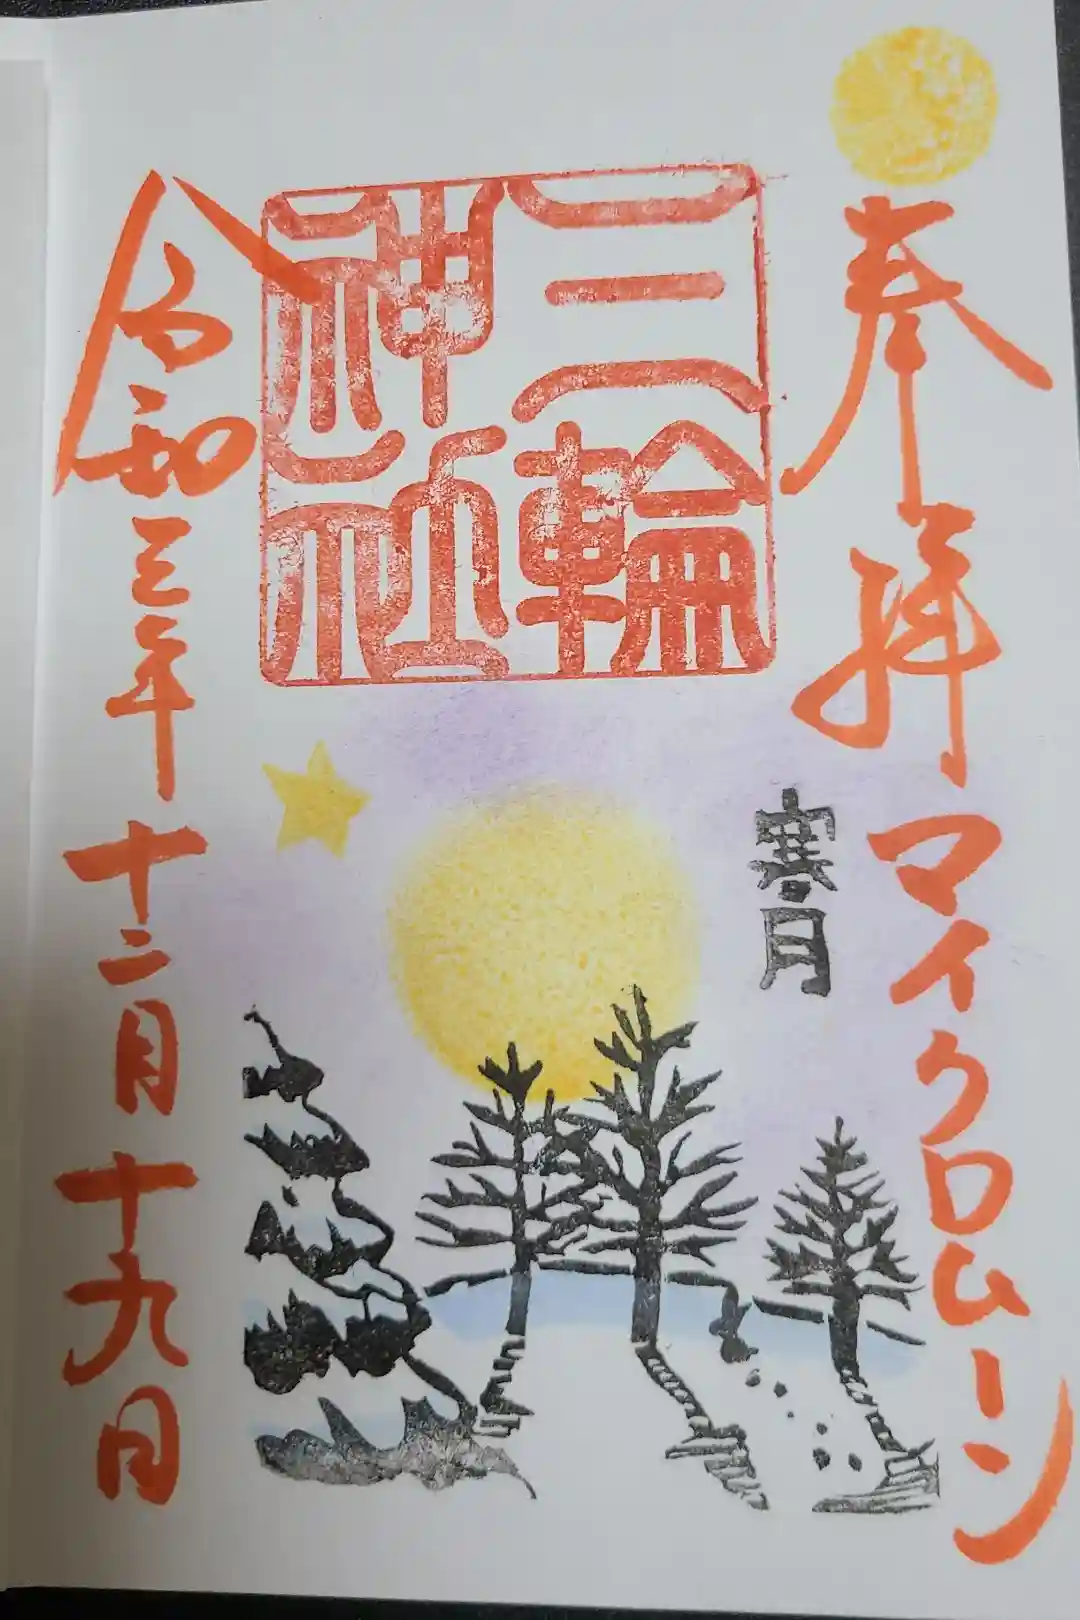 奉拝 マイクロムーン
三輪
神社
寒月
令和三年十二月十九日